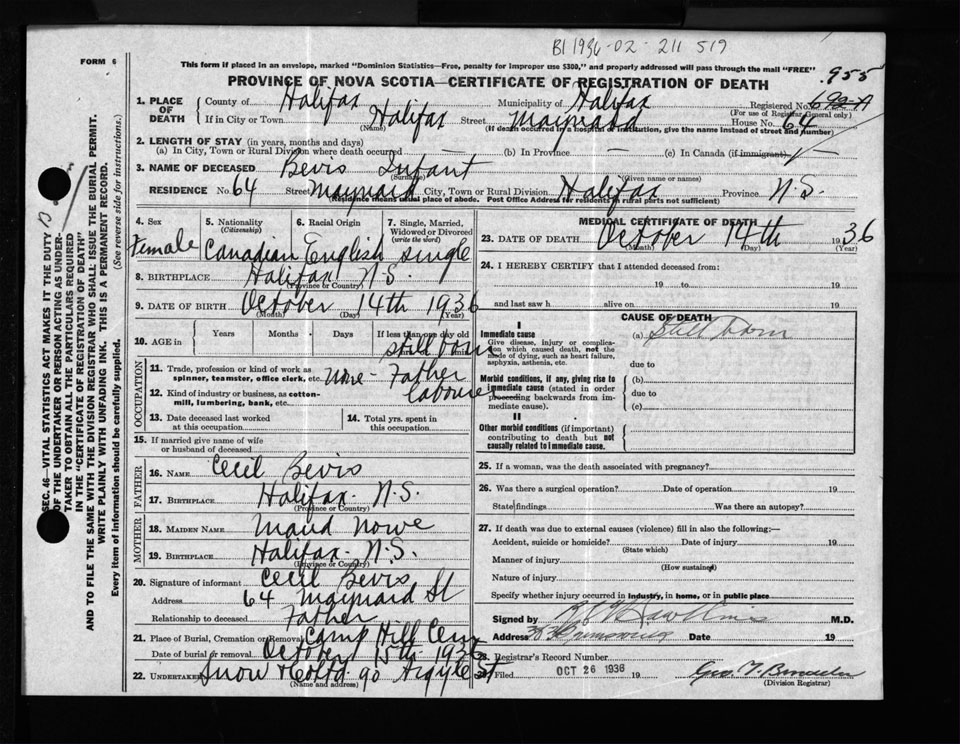 B1 1936-02-211 519
FORM 6
This form if placed in an envelope, marked "Dominion Statistics—Free, penalty for improper use $300," and properly addressed will pass through the mail "FREE"
.955
PROVINCE OF NOVA SCOTIA—CERTIFICATE OF REGISTRATION OF DEATH
1. PLACE OF DEATH County of Halifax Municipality of Halifax Registered No.
(For use of Registrar General only)
If in City or Town Halifax Street Maynard House No. 64
(Name) (If death occurred in a hospital or institution, give the name instead of street and number)
2. LENGTH OF STAY (in years, months and days)
(a) In City, Town or Rural Division where death occurred — (b) In Province — (c) In Canada (if immigrant)
3. NAME OF DECEASED Bevis Infant
(Surname) (Given name or names)
RESIDENCE No. 64 Street Maynard City, Town or Rural Division Halifax Province N.S.
(Residence means usual place of abode. Post Office Address for residents in rural parts not sufficient)
4. Sex 5. Nationality 6. Racial Origin 7. Single, Married,
(Citizenship) Widowed or Divorced
(write the word)
Female Canadian English single
8. BIRTHPLACE Halifax N.S.
(Province or Country)
9. DATE OF BIRTH October 14th 1936
(Month) (Day) (Year)
10. AGE in Years Months Days If less than one day old
still born
OCCUPATION
11. Trade, profession or kind of work as
spinner, teamster, office clerk, etc. none - Father
labourer
12. Kind of industry or business, as cotton-
mill, lumbering, bank, etc.
13. Date deceased last worked
at this occupation
14. Total yrs. spent in
this occupation
15. If married give name of wife
or husband of deceased
FATHER
16. NAME Cecil Bevis
17. BIRTHPLACE Halifax. N.S.
(Province or Country)
MOTHER
18. MAIDEN NAME Maud Nowe
19. BIRTHPLACE Halifax - N.S.
(Province or Country)
20. Signature of informant Cecil Bevis
Address 64 Maynard St
Relationship to deceased Father
21. Place of Burial, Cremation or Removal Camp Hill Cem
Date of burial or removal October 15th 1936
22. UNDERTAKER Snow & Co Ltd 90 Argyle St
(Name and address)
MEDICAL CERTIFICATE OF DEATH
23. DATE OF DEATH October 14th 1936
(Month) (Day) (Year)
24. I HEREBY CERTIFY that I attended deceased from:
19 to 19
and last saw h alive on 19
CAUSE OF DEATH
I
Immediate cause (a) Still born
Give disease, injury or complica-
tion which caused death, not the
mode of dying, such as heart failure,
asphyxia, asthenia, etc.
due to
Morbid conditions, if any, giving rise to
immediate cause (stated in order
proceeding backwards from im-
mediate cause).
(b)
due to
(c)
II
Other morbid conditions (if important)
contributing to death but not
causally related to immediate cause.
25. If a woman, was the death associated with pregnancy?
26. Was there a surgical operation? Date of operation 19
State findings Was there an autopsy?
27. If death was due to external causes (violence) fill in also the following:—
Accident, suicide or homicide? Date of injury 19
(State which)
Manner of injury
(How sustained)
Nature of injury
Specify whether injury occurred in industry, in home, or in public place
Signed by M.D.
Address Date 19
28. Registrar's Record Number
29. Filed OCT 26 1936 19
(Division Registrar)
SEC. 46—VITAL STATISTICS ACT MAKES IT THE DUTY
OF THE UNDERTAKER OR PERSON ACTING AS UNDER-
TAKER TO OBTAIN ALL THE PARTICULARS REQUIRED
IN THE "CERTIFICATE OF REGISTRATION OF DEATH"
AND TO FILE THE SAME WITH THE DIVISION REGISTRAR WHO SHALL ISSUE THE BURIAL PERMIT.
WRITE PLAINLY WITH UNFADING INK. THIS IS A PERMANENT RECORD.
Every item of information should be carefully supplied. (See reverse side for instructions.)